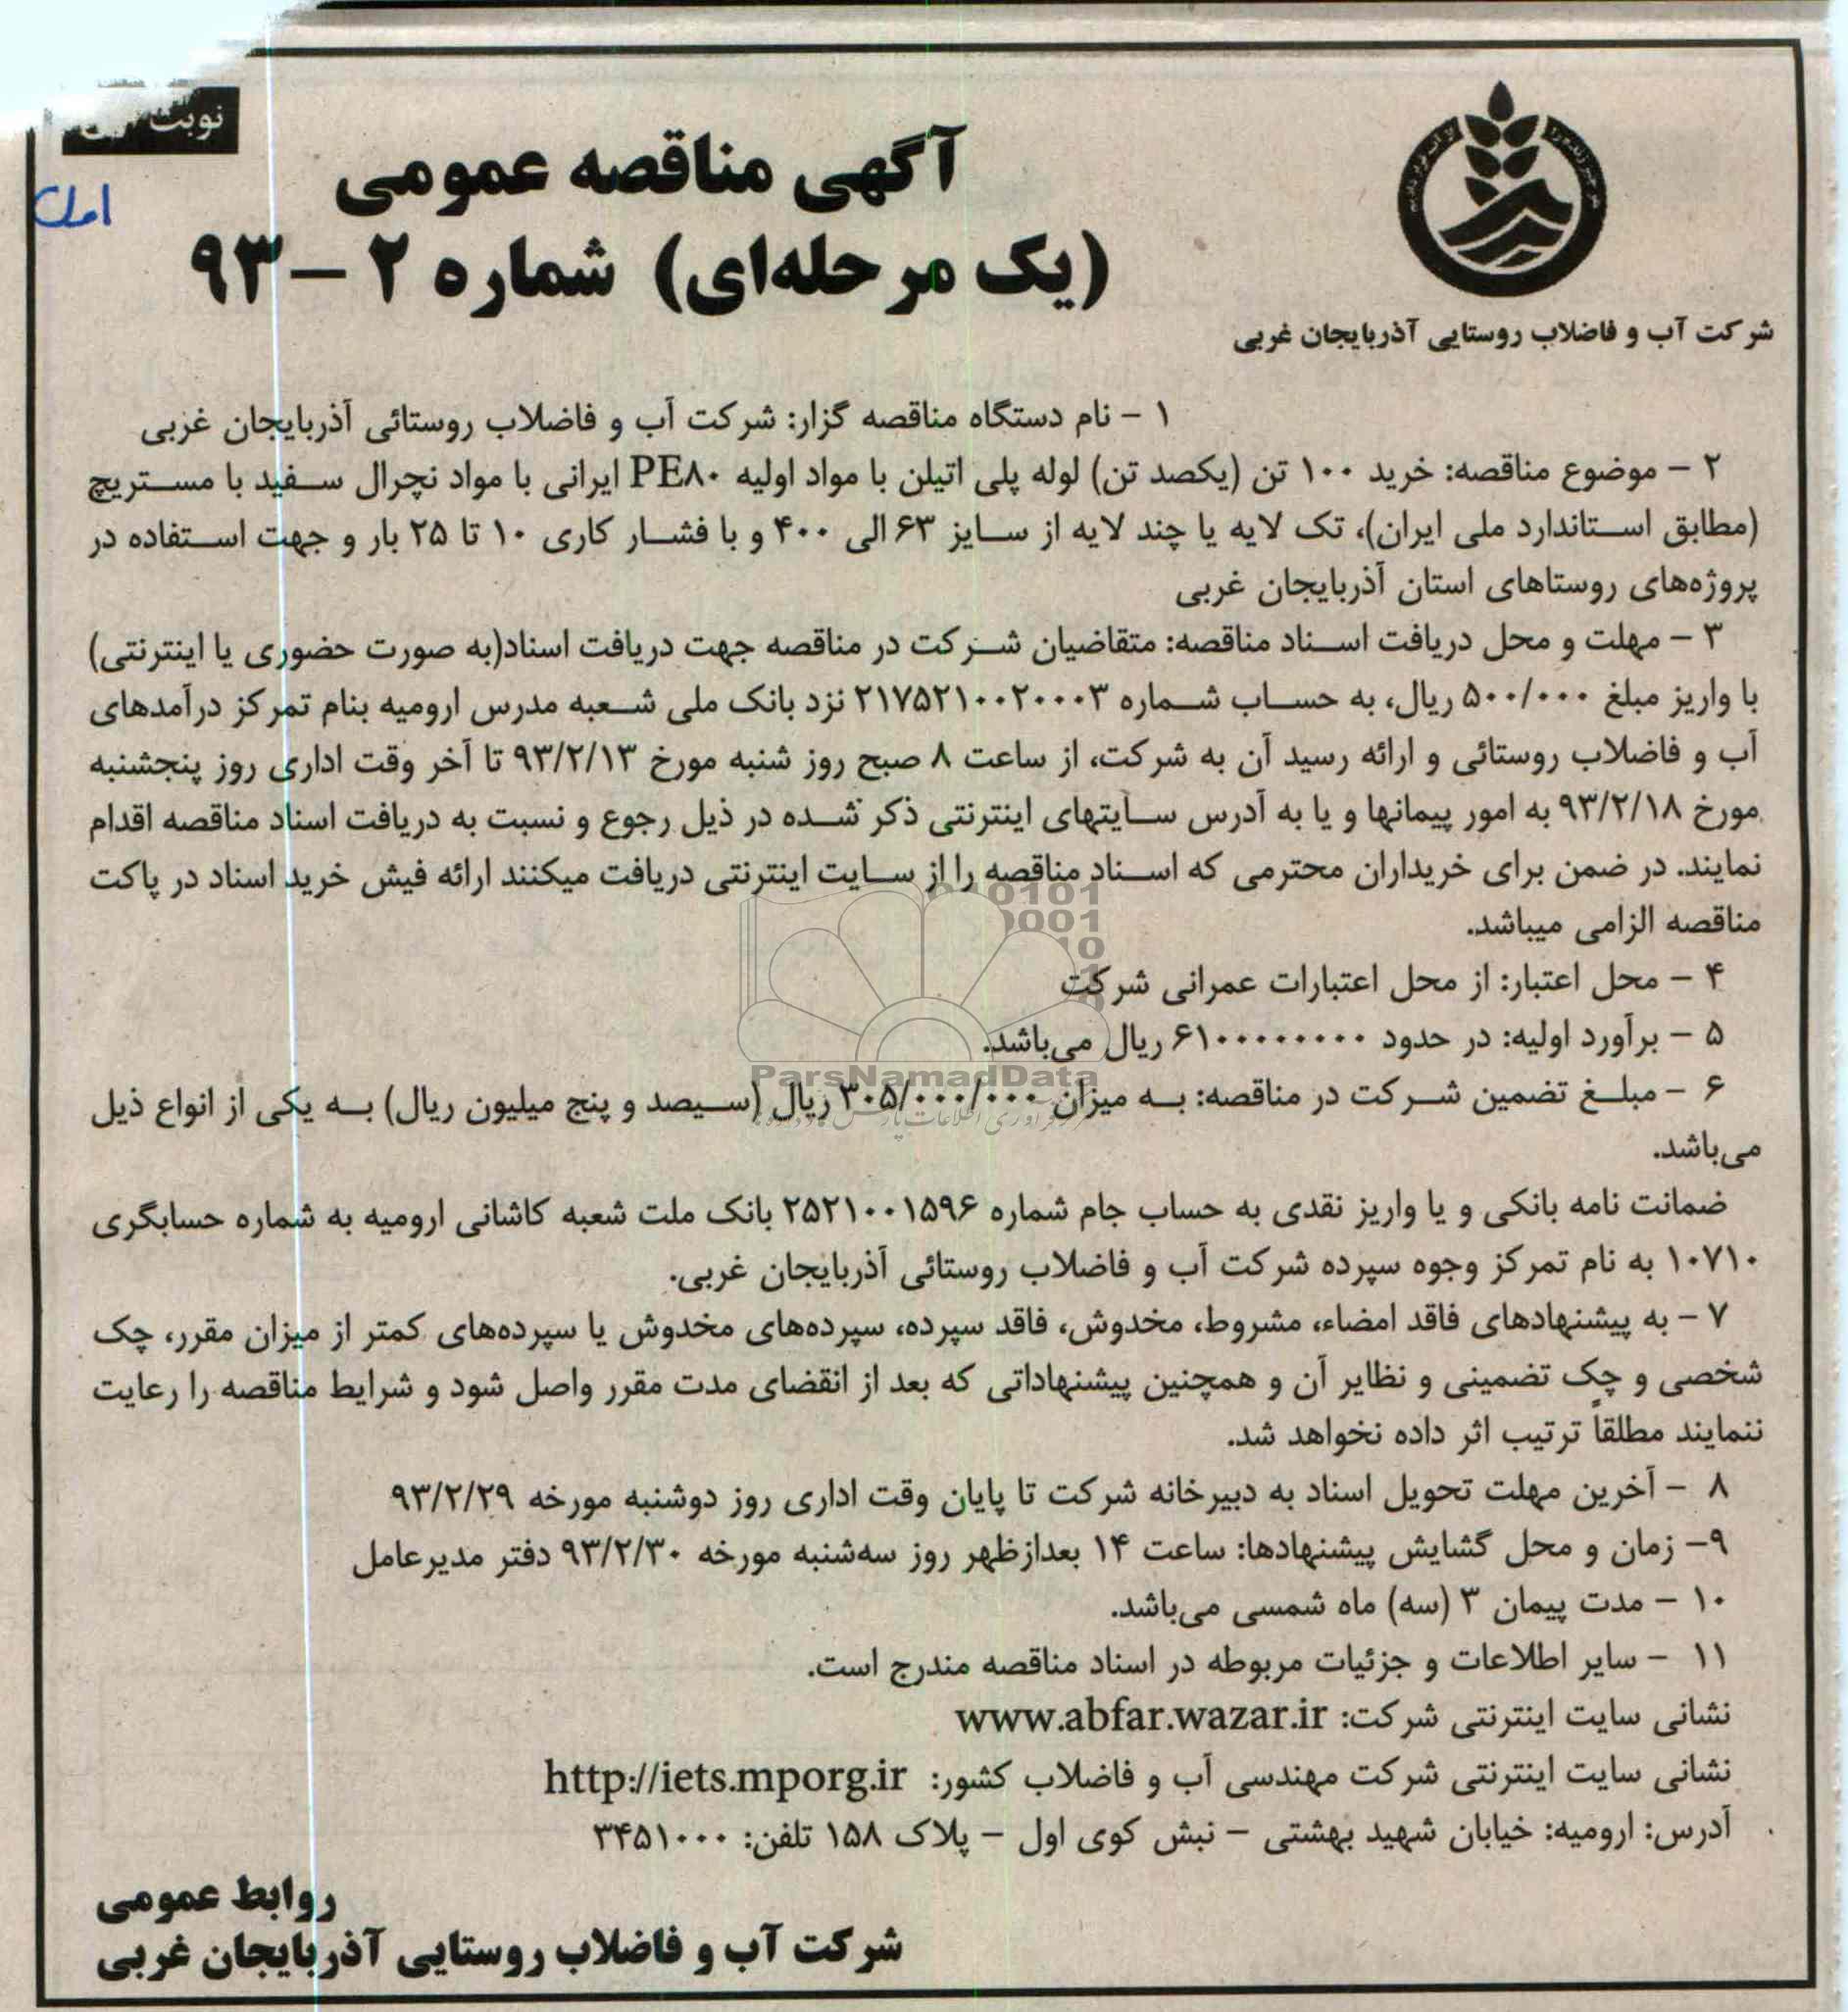 نوبت
اول
آگهی مناقصه عمومی
(یک مرحله‌ای) شماره ۲ – ۹۳
شرکت آب و فاضلاب روستایی آذربایجان غربی
۱ – نام دستگاه مناقصه گزار: شرکت آب و فاضلاب روستائی آذربایجان غربی
۲ – موضوع مناقصه: خرید ۱۰۰ تن (یکصد تن) لوله پلی اتیلن با مواد اولیه PE۸۰ ایرانی با مواد نچرال سفید با مستریچ
(مطابق استاندارد ملی ایران)، تک لایه یا چند لایه از سایز ۶۳ الی ۴۰۰ و با فشار کاری ۱۰ تا ۲۵ بار و جهت استفاده در
پروژه‌های روستاهای استان آذربایجان غربی
۳ – مهلت و محل دریافت اسناد مناقصه: متقاضیان شرکت در مناقصه جهت دریافت اسناد(به صورت حضوری یا اینترنتی)
با واریز مبلغ ۵۰۰/۰۰۰ ریال، به حساب شماره ۲۱۷۵۲۱۰۰۲۰۰۰۳ نزد بانک ملی شعبه مدرس ارومیه بنام تمرکز درآمدهای
آب و فاضلاب روستائی و ارائه رسید آن به شرکت، از ساعت ۸ صبح روز شنبه مورخ ۹۳/۲/۱۳ تا آخر وقت اداری روز پنجشنبه
مورخ ۹۳/۲/۱۸ به امور پیمانها و یا به آدرس سایتهای اینترنتی ذکر شده در ذیل رجوع و نسبت به دریافت اسناد مناقصه اقدام
نمایند. در ضمن برای خریداران محترمی که اسناد مناقصه را از سایت اینترنتی دریافت میکنند ارائه فیش خرید اسناد در پاکت
مناقصه الزامی میباشد.
۴ – محل اعتبار: از محل اعتبارات عمرانی شرکت
۵ – برآورد اولیه: در حدود ۶۱۰۰۰۰۰۰۰۰ ریال می‌باشد.
ParsNamadData
۶ – مبلغ تضمین شرکت در مناقصه: به میزان ۳۰۵/۰۰۰/۰۰۰ ریال (سیصد و پنج میلیون ریال) به یکی از انواع ذیل
می‌باشد.
ضمانت نامه بانکی و یا واریز نقدی به حساب جام شماره ۲۵۲۱۰۰۱۵۹۶ بانک ملت شعبه کاشانی ارومیه به شماره حسابگری
۱۰۷۱۰ به نام تمرکز وجوه سپرده شرکت آب و فاضلاب روستائی آذربایجان غربی.
۷ – به پیشنهادهای فاقد امضاء، مشروط، مخدوش، فاقد سپرده، سپرده‌های مخدوش یا سپرده‌های کمتر از میزان مقرر، چک
شخصی و چک تضمینی و نظایر آن و همچنین پیشنهاداتی که بعد از انقضای مدت مقرر واصل شود و شرایط مناقصه را رعایت
ننمایند مطلقاً ترتیب اثر داده نخواهد شد.
۸ – آخرین مهلت تحویل اسناد به دبیرخانه شرکت تا پایان وقت اداری روز دوشنبه مورخه ۹۳/۲/۲۹
۹– زمان و محل گشایش پیشنهادها: ساعت ۱۴ بعدازظهر روز سه‌شنبه مورخه ۹۳/۲/۳۰ دفتر مدیرعامل
۱۰ – مدت پیمان ۳ (سه) ماه شمسی می‌باشد.
۱۱ – سایر اطلاعات و جزئیات مربوطه در اسناد مناقصه مندرج است.
نشانی سایت اینترنتی شرکت: www.abfar.wazar.ir
نشانی سایت اینترنتی شرکت مهندسی آب و فاضلاب کشور: http://iets.mporg.ir
آدرس: ارومیه: خیابان شهید بهشتی – نبش کوی اول – پلاک ۱۵۸ تلفن: ۳۴۵۱۰۰۰
روابط عمومی
شرکت آب و فاضلاب روستایی آذربایجان غربی